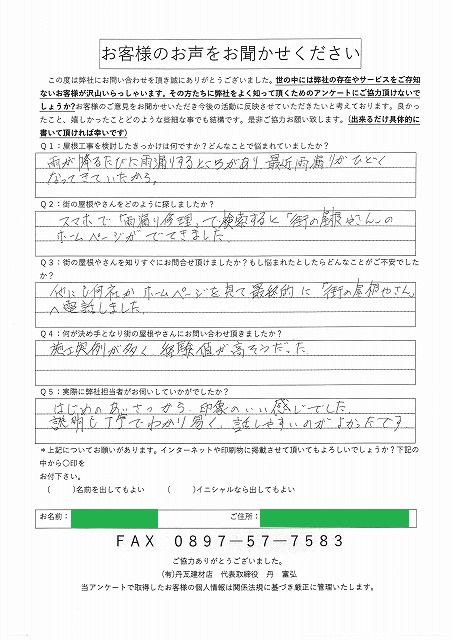 お客様のお声をお聞かせください
この度は弊社にお問い合わせを頂き誠にありがとうございました。世の中には弊社の存在やサービスをご存知
ないお客様が沢山いらっしゃいます。その方たちに弊社をよく知って頂くためのアンケートにご協力頂けないで
しょうか?お客様のご意見をお聞かせいただき今後の活動に反映させていただきたいと考えております。良かっ
たこと、嬉しかったことどのような些細な事でも結構です。是非ご協力お願い致します。(出来るだけ具体的に
書いて頂ければ幸いです)
Q1：屋根工事を検討したきっかけは何ですか？どんなことで悩んでいましたか？
雨が降るたびに雨漏りするところがあり最近雨漏りがひどく
なってきていたから。
Q2：街の屋根やさんをどのように探しましたか？
スマホで「雨漏り修理」で検索すると「街の屋根やさん」の
ホームページがでてきました。
Q3：街の屋根やさんを知りすぐにお問合せ頂けましたか？もし悩まれたとしたらどんなことがご不安でした
か？
他にも何社かホームページを見て最終的に「街の屋根やさん」
へ電話しました。
Q4：何が決め手となり街の屋根やさんにお問い合わせ頂きましたか？
施工実例が多く経験値が高そうだった
Q5：実際に弊社担当者がお伺いしていかがでしたか？
はじめのあいさつから印象のいい感じでした
説明も丁寧でわかり易く、話しやすいのがよかったです
＊上記についてお願いがあります。インターネットや印刷物に掲載させて頂いてもよろしいでしょうか？下記の
中から○印を
お付下さい。
(　　)名前を出してもよい　　(　　)イニシャルなら出してもよい
お名前：　　ご住所：
FAX 0897―57―7583
ご協力ありがとうございました。
(有)丹瓦建材店　代表取締役　丹　富弘
当アンケートで取得したお客様の個人情報は関係法規に基づき厳正に管理いたします。